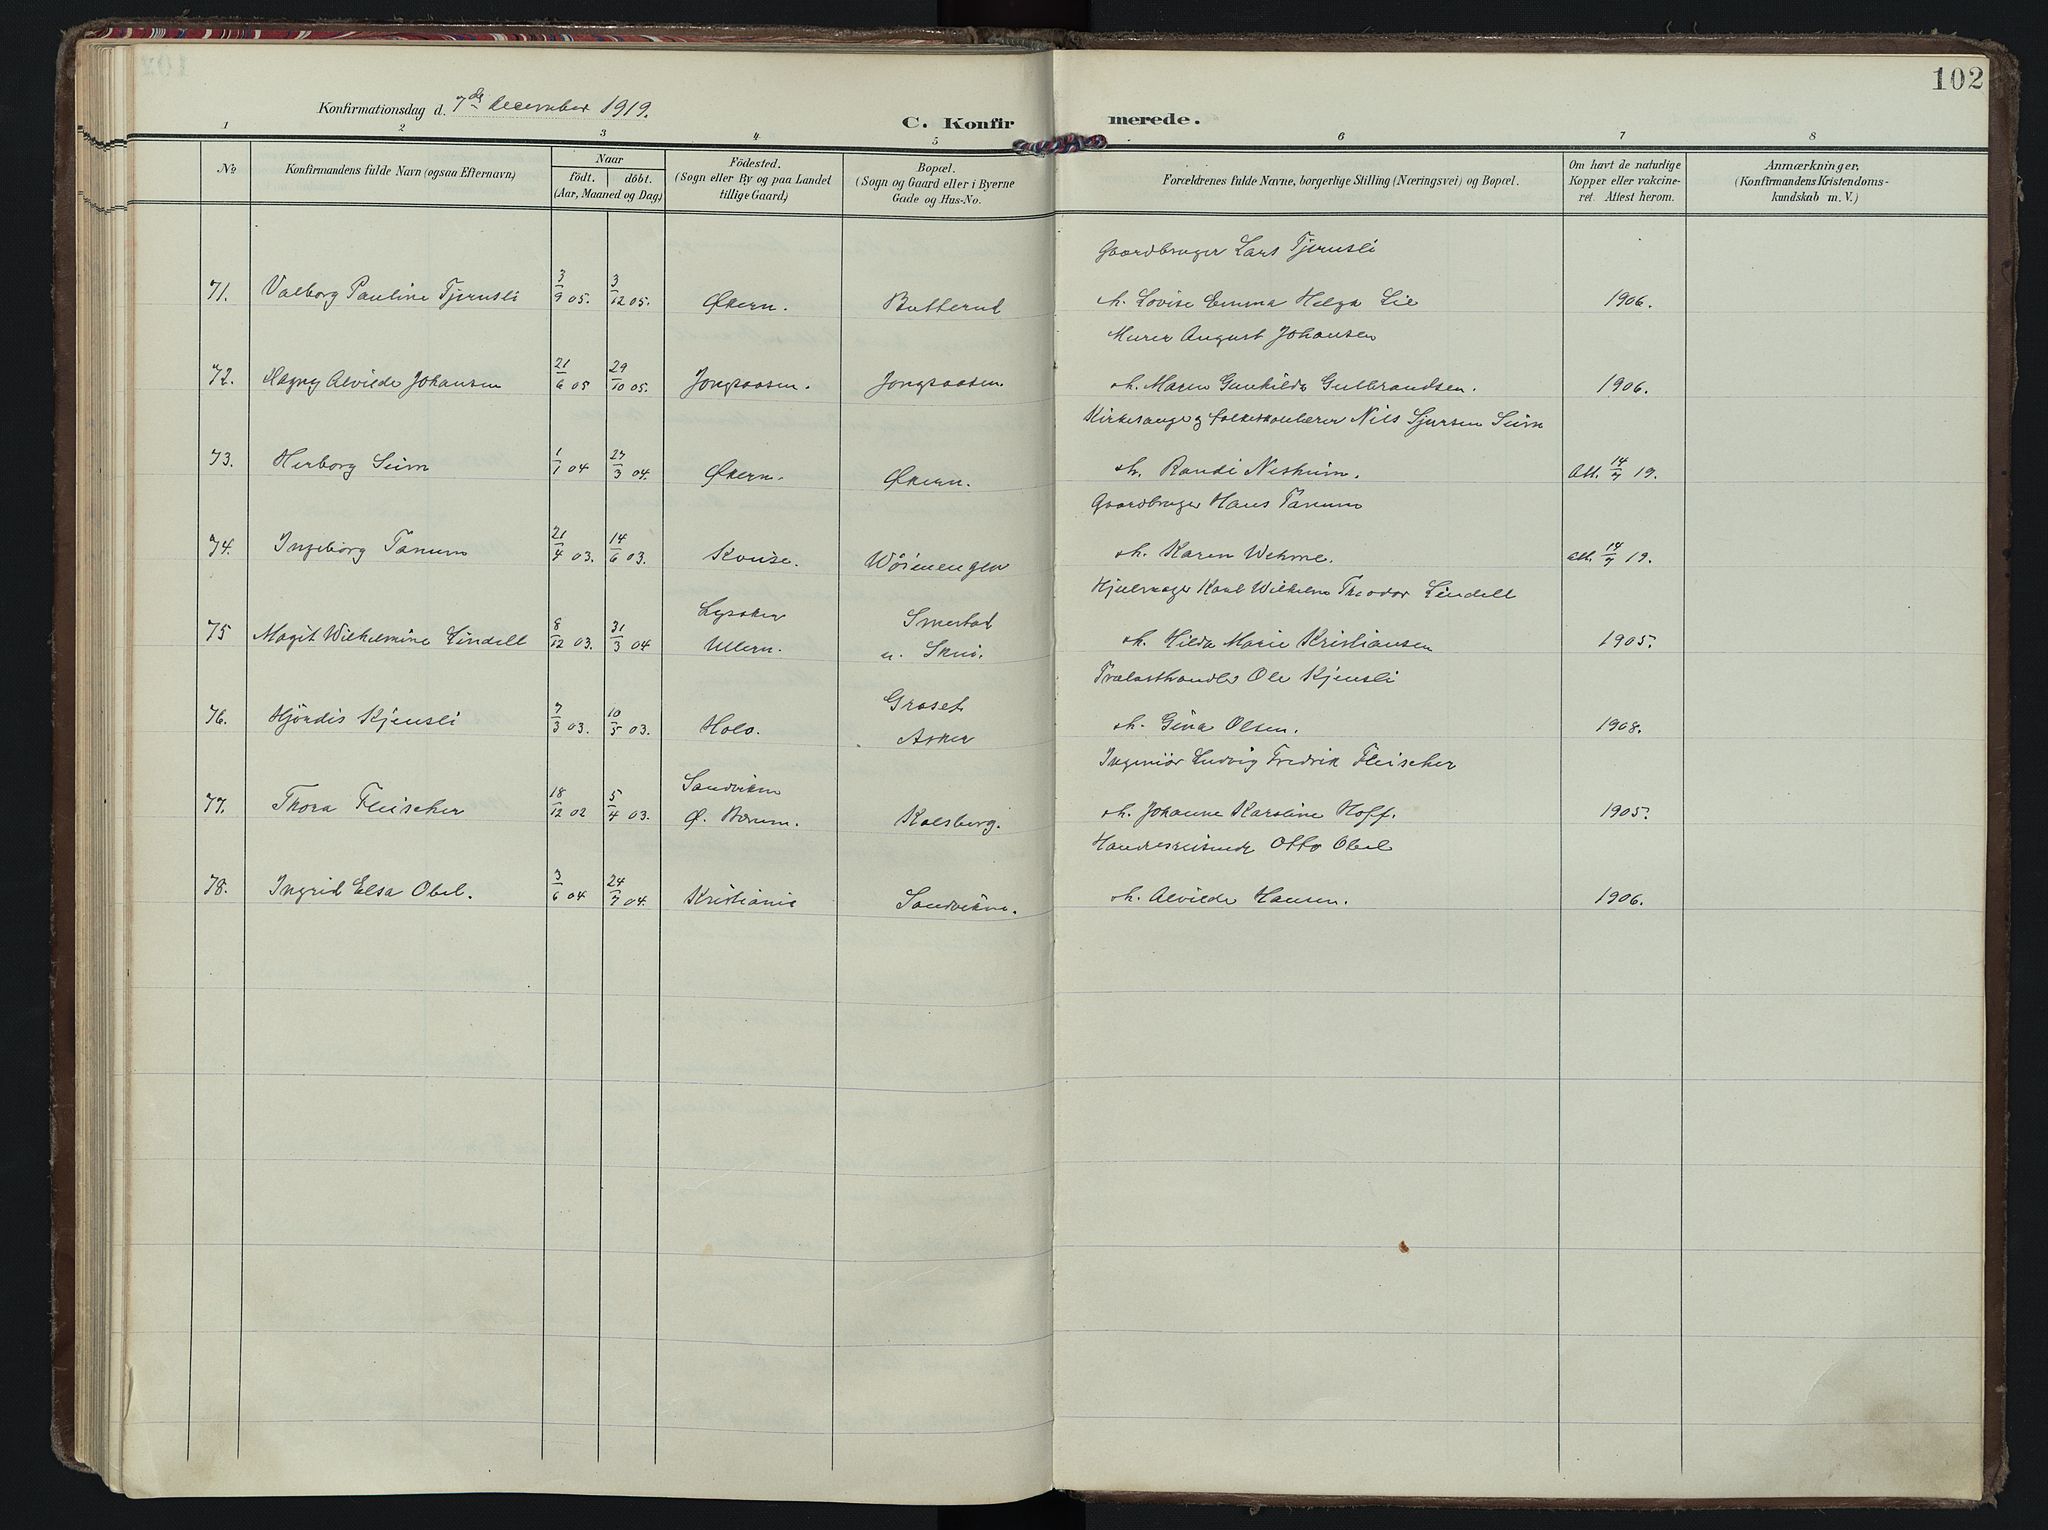 102
Konfirmationsdag d. 7de december 1919.
C. Konfirmerede.
1 2 3 4 5 6 7 8
No
Konfirmandens fulde Navn (ogsaa Efternavn)
Naar
födt. döbt.
(Aar, Maaned og Dag)
Födested.
(Sogn eller By og paa Landet
tillige Gaard)
Bopæl.
(Sogn og Gaard eller i Byerne
Gade og Hus-No.
Forældrenes fulde Navne, borgerlige Stilling (Næringsvei) og Bopæl.
Om havt de naturlige
Kopper eller vakcine-
ret. Attest herom.
Anmærkninger,
(Konfirmandens Kristendoms-
kundskab m. V.)
Gaardbruger Lars Tjernsli
71. Valborg Pauline Tjernsli 3/9 05. 3/12 05. Økern. Butterud h. Lovise Emma Helga Lie 1906.
Murer August Johansen
72. Hagny Alvilde Johansen 21/6 05 29/10 05. Jongsaasen. Jongsaasen h. Maren Gunhilda Gulbrandsen. 1906.
Kirkesanger og folkeskolelærer Nils Sjursen Seim
73. Herborg Seim 1/1 04 27/3 04. Økern. Økern. h. Randi Neshium. Att. 14/7 19.
Gaardbruger Hans Tanum
74. Ingeborg Tanum 21/4 03. 14/6 03. h. Karen Wehme. Att. 14/7 19.
Hjulmager Karl Wilhelm Theodor Lindell
Lysaker Smestad
75 Magit Wilhelmine Lindell 8/12 03. 31/3 04 Ullern. n. Skui. h. Hilda Marie Kristiansen 1905.
Trælasthandler Ole Kjensli
Groset
76. Hjördis Kjensli 7/3 03. 10/5 03. Holo. Asker h. Gina Olsen. 1908.
Ingeniör Ludvig Fredrik Fleischer
Sandviken
77. Thora Fleischer 18/12 02 5/4 03. Ø. Bærum. Kolsberg. h. Johanne Karoline Hoff. 1905.
Handelsreisende Otto Obel
78. Ingrid Elsa Obel. 3/6 04 24/7 04. Kristiania Sandviken. h. Alvilde Hansen. 1906.